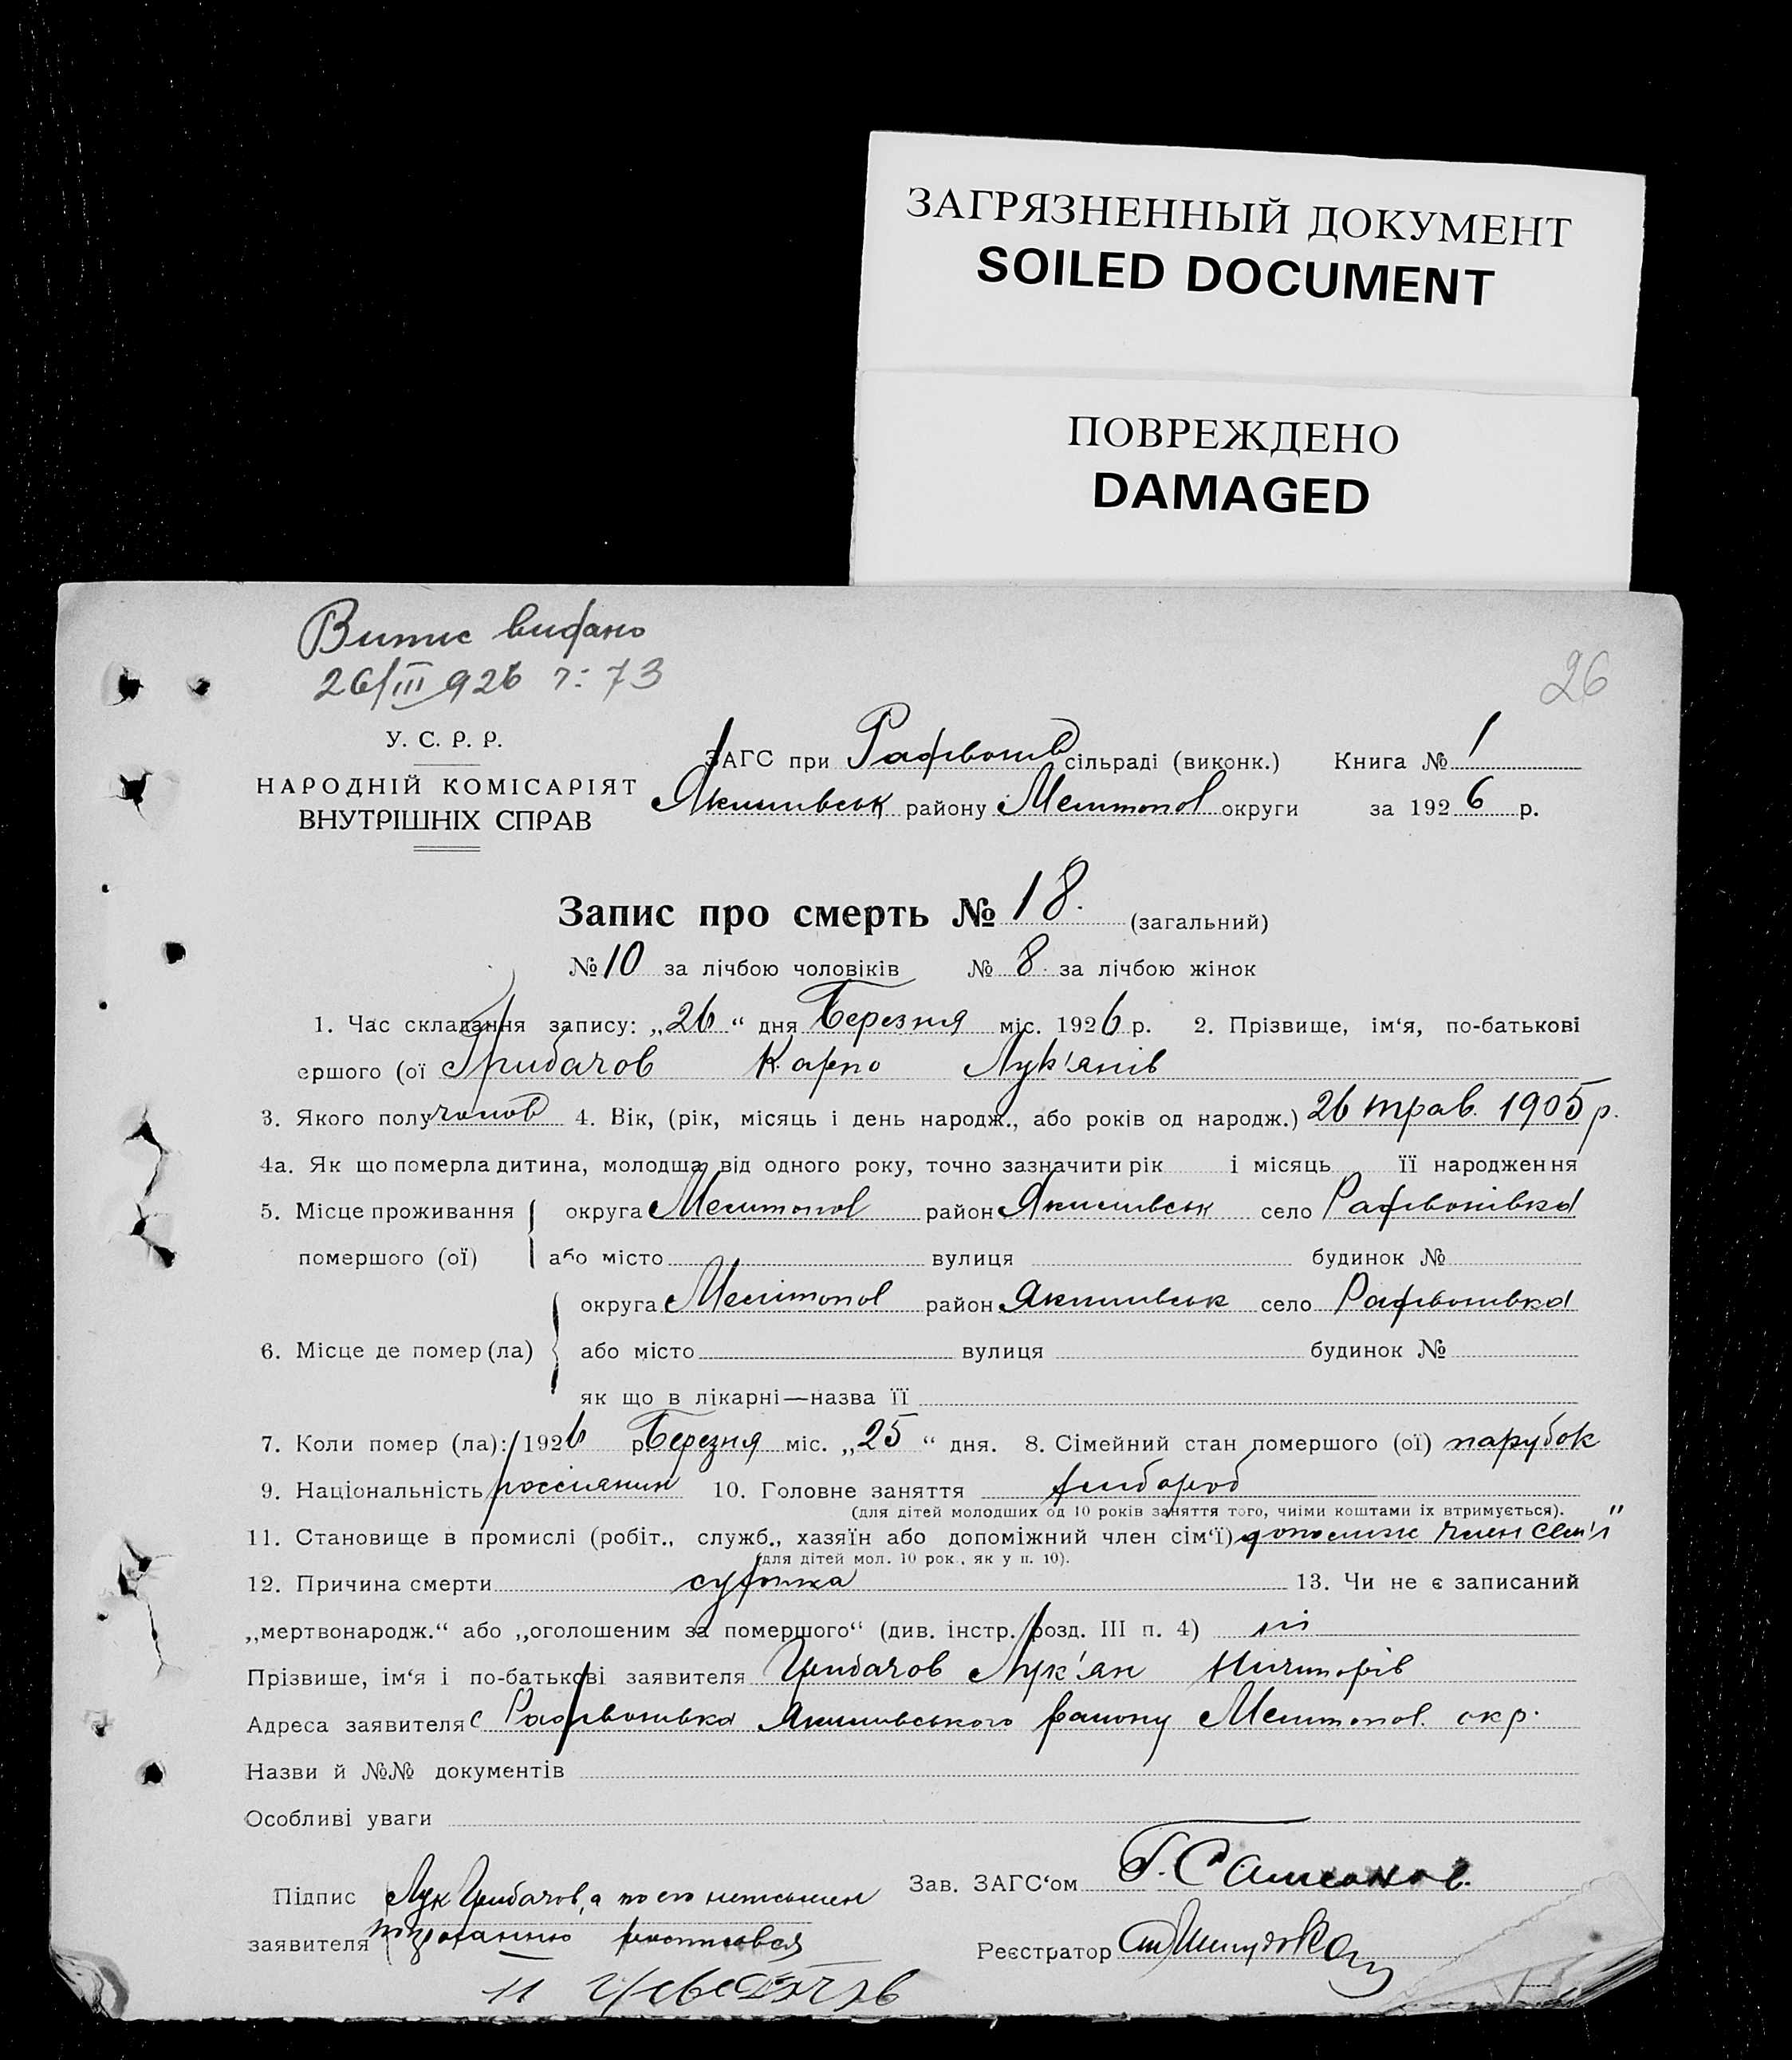 ЗАГРЯЗНЕННЫЙ ДОКУМЕНТ
SOILED DOCUMENT
ПОВРЕЖДЕНО
DAMAGED
Витис видано
26/III 926 73
26
У. С. Р. Р.
НАРОДНІЙ КОМІСАРІЯТ
ВНУТРІШНІХ СПРАВ
ЗАГС при сільраді (виконк.) Книга № 1
Якимівськ району Мелитопол округи за 1926 р.
Запис про смерть № 18. (загальний)
№ 10 за лічбою чоловіків № 8. за лічбою жінок
1. Час складання запису: „26“ дня Березня міс. 1926 р. 2. Прізвище, ім‘я, по-батькові
ершого (ої Грибачов Карпо Лук'янів
3. Якого полу чолов 4. Вік, (рік, місяць і день народж., або років од народж.) 26 трав. 1905 р.
4а. Як що померла дитина, молодша від одного року, точно зазначити рік і місяць її народження
5. Місце проживання округа Мелитопол район Якимівськ село Радивонівка
помершого (ої) або місто вулиця будинок №
округа Мелітопол район Якимивськ село Радивонивка
6. Місце де помер (ла) або місто вулиця будинок №
як що в лікарні—назва її
7. Коли помер (ла): 1926 р. Березня міс. „25“ дня. 8. Сімейний стан помершого (ої) парубок
9. Національність россиянин 10. Головне заняття хлибороб
(для дітей молодших од 10 років заняття того, чиїми коштами їх втримується).
11. Становище в промислі (робіт., служб., хазяїн або допоміжний член сім‘ї) член
(для дітей мол. 10 рок., як у п. 10).
12. Причина смерти сухотка 13. Чи не є записаний
„мертвонародж.“ або „оголошеним за помершого“ (див. інстр. розд. III п. 4) ні
Прізвище, ім‘я і по-батькові заявителя Грибачов Лук'ян Ничипорів
Адреса заявителя с Радивонивка Якимивського району Мелитопол. окр.
Назви й №№ документів
Особливі уваги
Підпис Лук Грибачов, а по его неписьмен
заявителя росписався
Зав. ЗАГС‘ом Г. Самсонов.
Реєстратор